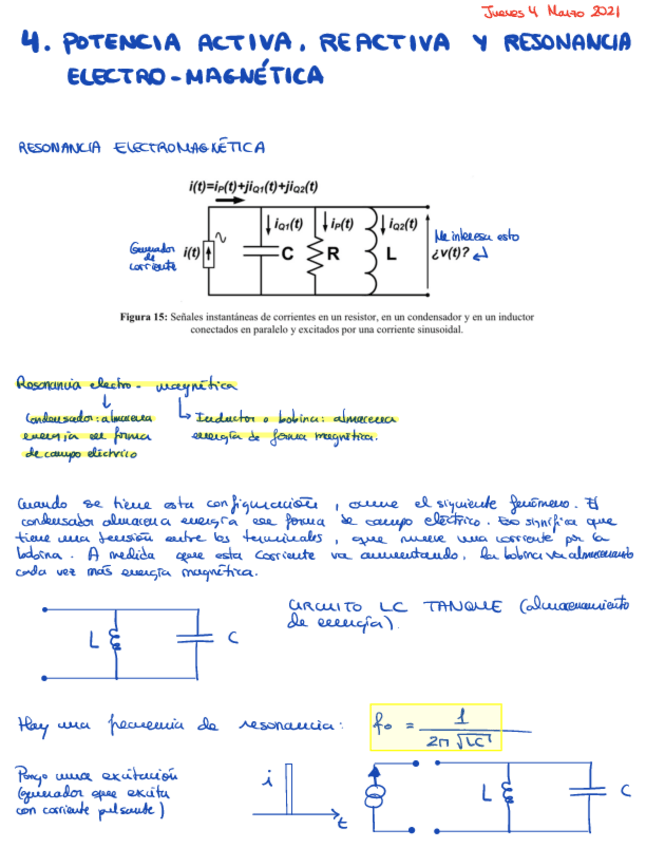 Jueves 4 Marzo 2021
4. POTENCIA ACTIVA, REACTIVA Y RESONANCIA
ELECTRO-MAGNÉTICA
RESONANCIA ELECTROMAGNÉTICA
i(t)=iP(t)+jiQ1(t)+jiQ2(t)
Generador de corriente
i(t)
iQ1(t)
iP(t)
iQ2(t)
C
R
L
Me interesa esto
¿v(t)?
Figura 15: Señales instantáneas de corrientes en un resistor, en un condensador y en un inductor
conectados en paralelo y excitados por una corriente sinusoidal.
Resonancia electro-magnética
Condensador: almacena
energía en forma
de campo eléctrico
Inductor o bobina: almacena
energía de forma magnética.
Cuando se tiene esta configuración, ocurre el siguiente fenómeno. El
condensador almacena energía en forma de campo eléctrico. Eso significa que
tiene una tensión entre los terminales, que mueve una corriente por la
bobina. A medida que esta corriente va aumentando, la bobina va almacenando
cada vez más energía magnética.
CIRCUITO LC TANQUE (almacenamiento
de energía).
L
C
Hay una frecuencia de resonancia: f₀ = 1 / 2π√LC
Pongo una excitación
(generador que excita
con corriente pulsante)
i
t
L
C